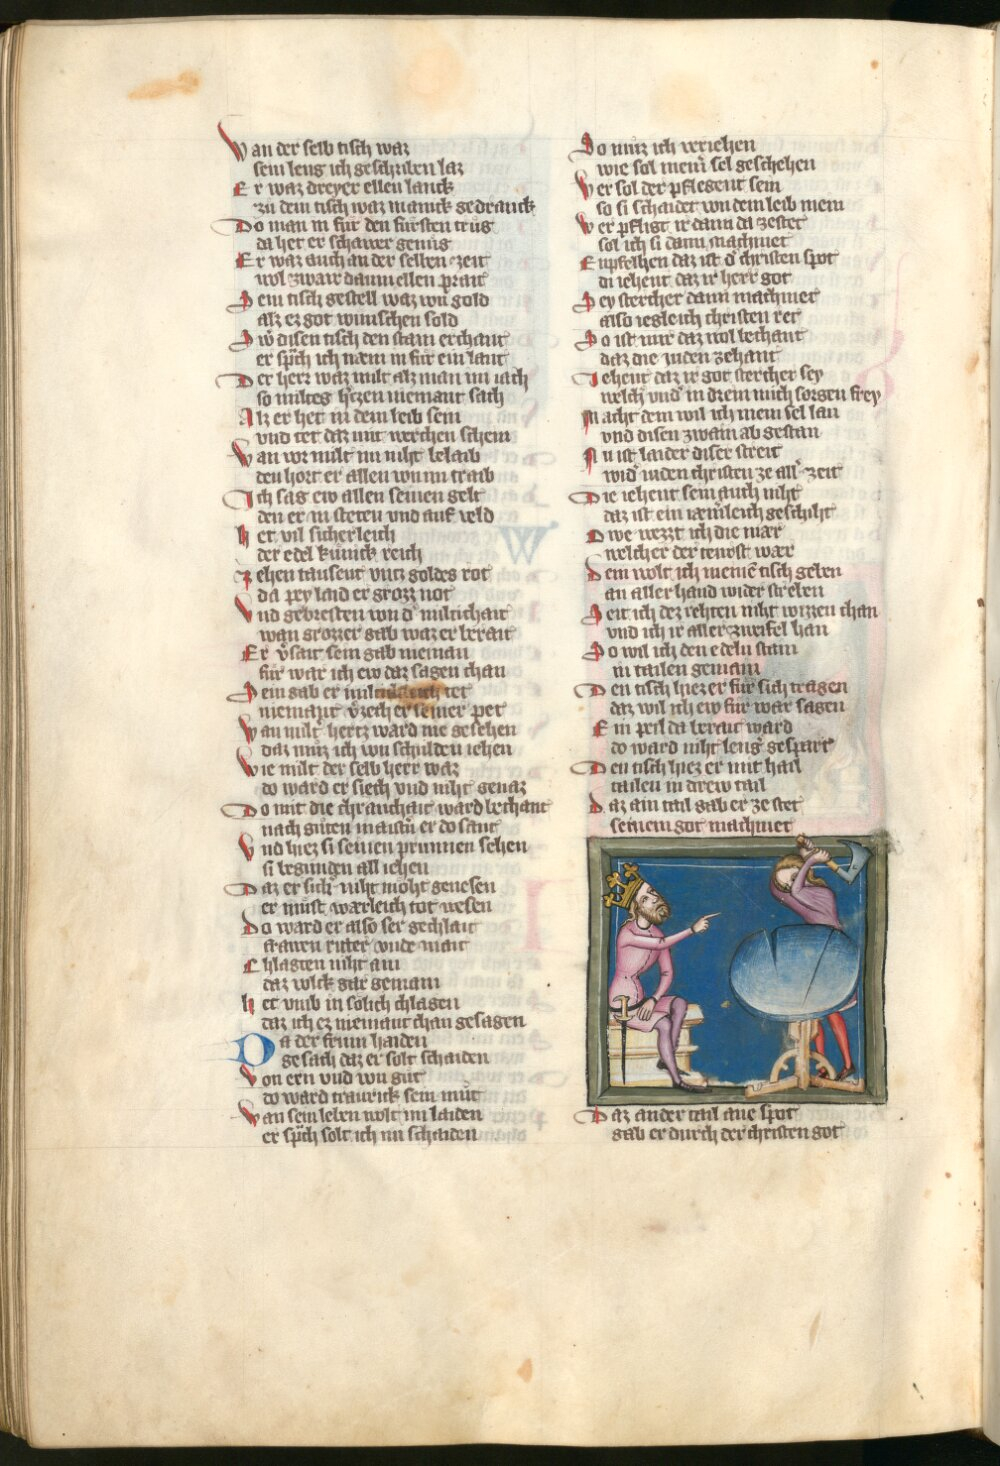 Wan der selb tisch waz
sein leng ich geschriben laz
Er waz dreyer ellen lanck
zu dem tisch waz manick gedranck
Do man in fur den fursten trůg
da het er schawer genůg
Er waz auch an der selben zeit
wol zwair daum ellen prait
Sein tisch gestell waz vun gold
alz ez got wunschen sold
Sw̄ disen tisch den stain erchant
er sp̄ch ich næm in fur ein lant
Der herr waz milt alz man im iach
so miltes h̓tzen niemant sach
Alz er het in dem leib sein
vnd tet daz mit werchen schein
Wan vor milt im niht belaib
den hort er allen vun im traib
Ich sag ew allen seinen gelt
den er in steten vnd auf veld
Het vil sicherleich
der edel kunick reich
Zehen tausent vntz goldes rot
da pey laid er grozz not
Vnd gebresten vun d̓ miltichait
wan grozzer gab waz er berait
Er v̓sait sein gab nieman
fur war ich ew daz sagen chan
Sein gab er miltichleich tet
niemant v̓zech er seiner pet
Wan milt hertz ward nie gesehen
daz muz ich vun schulden iehen
Wie milt der selb herr waz
do ward er siech vnd niht genaz
Do mit die chranchait ward bechant
nach gůten maist̓n er do sant
Vnd hiez si seinen prunnen sehen
si begunden all iehen
Daz er sich niht moht genesen
er můst wærleich tot wesen
Do ward er also ser gechlait
frawen ritter vnde mait
Chlagten niht ain
daz volck gar gemain
Het vmb in solich chlagen
daz ich ez niemant chan gesagen
Da der frum haiden
gesach daz er solt schaiden
Von ern vnd vun gůt
do ward traurick sein můt
Wan sein leben wolt im laiden
er sp̄ch solt ich nu schaiden
So muz ich veriehen
wie sol mein̓ sel geschehen
Wer sol der pflegent sein
so si schaidet vun dem leib mein
Wer pfligt ir dann da zestet
sol ich si dann machmet
Enpfelhen daz ist d̓ christen spot
di iehent daz ir herr got
Sey stercher dann machmet
also iegleich christen ret
So ist mir daz wol bechant
daz die iuden zehant
Iehent daz ir got stercher sey
welch̓ vnd̓ in drein mich sorgen frey
Macht dem wil ich mein sel lan
vnd disen zwain ab gestan
Nu ist laider diser streit
wid̓ iuden christen ze all̓ zeit
Die iehent sein auch niht
daz ist ein iæmerleich geschiht
Owe wezzt ich die mær
welcher der tewrst wær
Dem wolt ich meinē tisch geben
an aller hand wider streben
Seit ich dez rehten niht wizzen chan
vnd ich ir aller zweifel han
So wil ich den edeln stain
in tailen gemain
Den tisch hiez er fur sich tragen
daz wil ich ew fur war sagen
Ein peil da berait ward
do ward niht leng̓ gespart
Den tisch hiez er mit hail
tailen in drew tail
Daz ain tail gab er ze stet
seinem got machmet
Daz ander tail ane spot
gab er durch der christen got